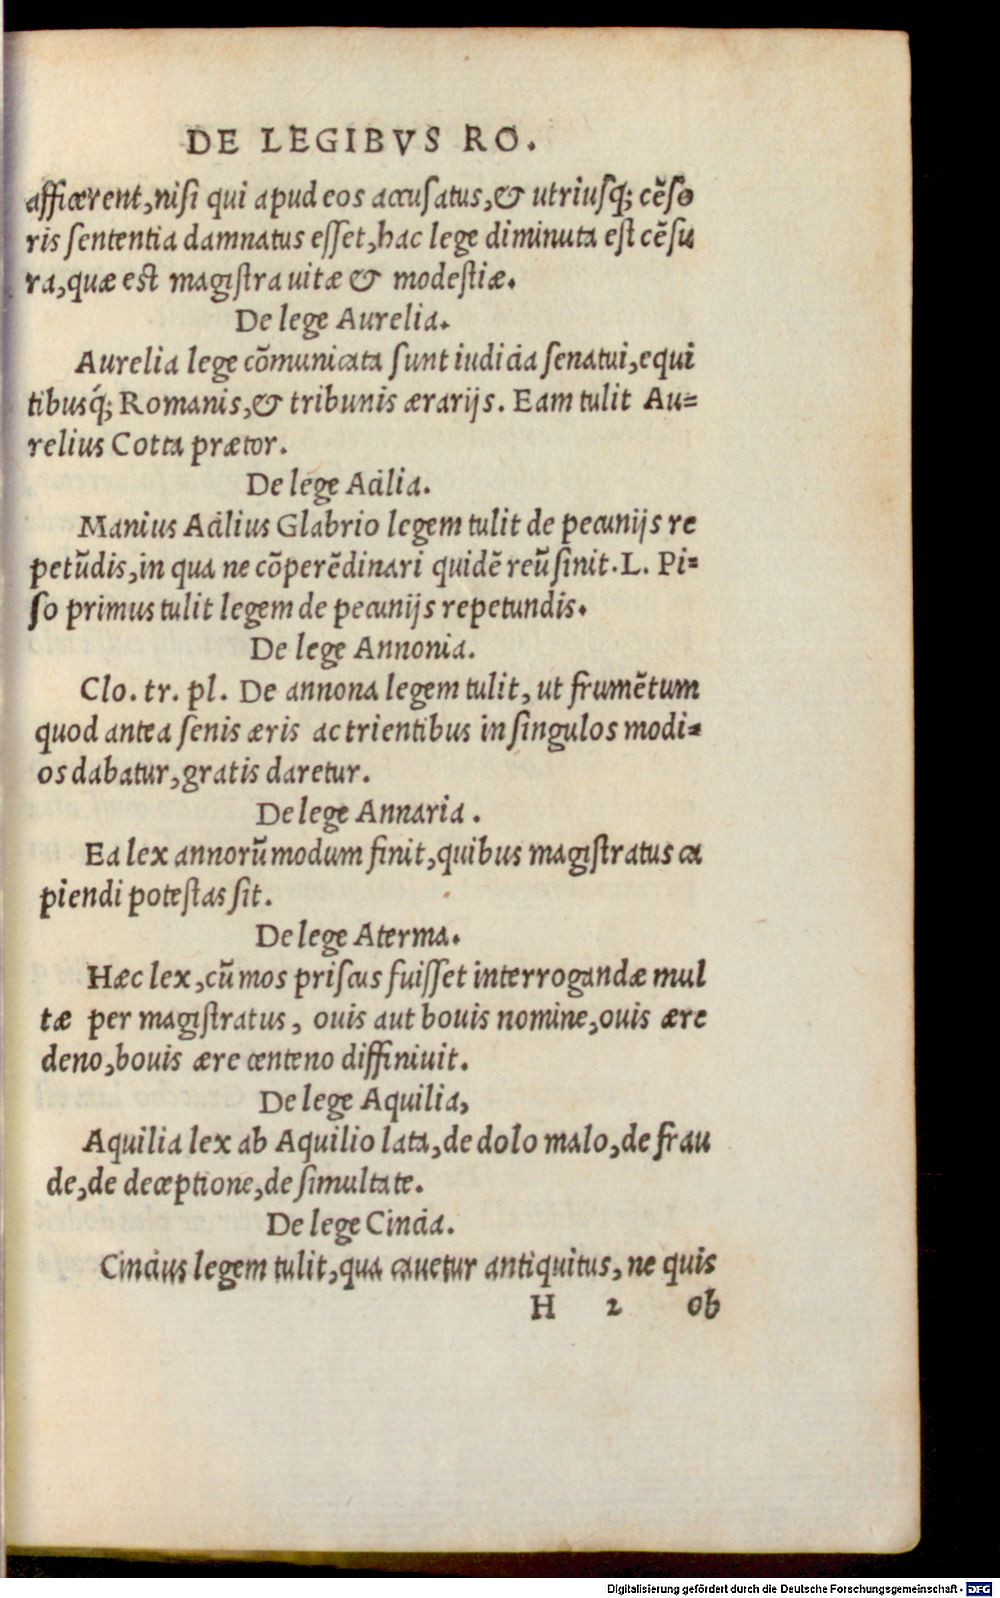 DE LEGIBVS RO.
afficerent, nisi qui apud eos accusatus, & utriusq; cēso
ris sententia damnatus esset, hac lege diminuta est cēsu
ra, quæ est magistra uitæ & modestiæ.
De lege Aurelia.
Aurelia lege cōmunicata sunt iudicia senatui, equi
tibusq́; Romanis, & tribunis ærarijs. Eam tulit Au=
relius Cotta prætor.
De lege Acilia.
Manius Acilius Glabrio legem tulit de pecunijs re
petūdis, in qua ne cōperēdinari quidē reū sinit. L. Pi=
so primus tulit legem de pecunijs repetundis.
De lege Annonia.
Clo. tr. pl. De annona legem tulit, ut frumētum
quod antea senis æris ac trientibus in singulos modi=
os dabatur, gratis daretur.
De lege Annaria.
Ea lex annorū modum finit, quibus magistratus ca
piendi potestas sit.
De lege Aterma.
Hæc lex, cū mos priscus fuisset interrogandæ mul
tæ per magistratus, ouis aut bouis nomine, ouis ære
deno, bouis ære centeno diffiniuit.
De lege Aquilia,
Aquilia lex ab Aquilio lata, de dolo malo, de frau
de, de deceptione, de simultate.
De lege Cincia.
Cincius legem tulit, qua cauetur antiquitus, ne quis
H 2 ob
Digitalisierung gefördert durch die Deutsche Forschungsgemeinschaft - DFG